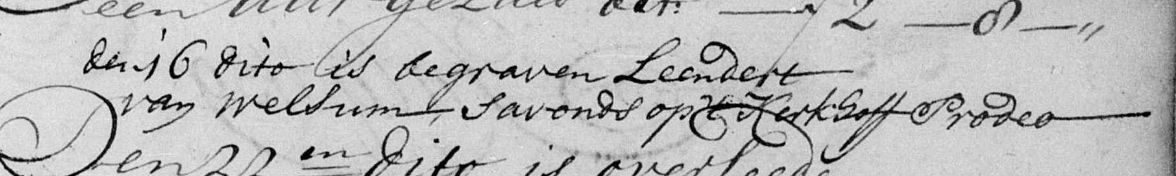 een uur geluid bet: — 2 — 8 — „
den 16 dito is begraven Leendert
van Welsum, Savonds op't Kerkhoff Prodeo
Den 22 en dito is overleede